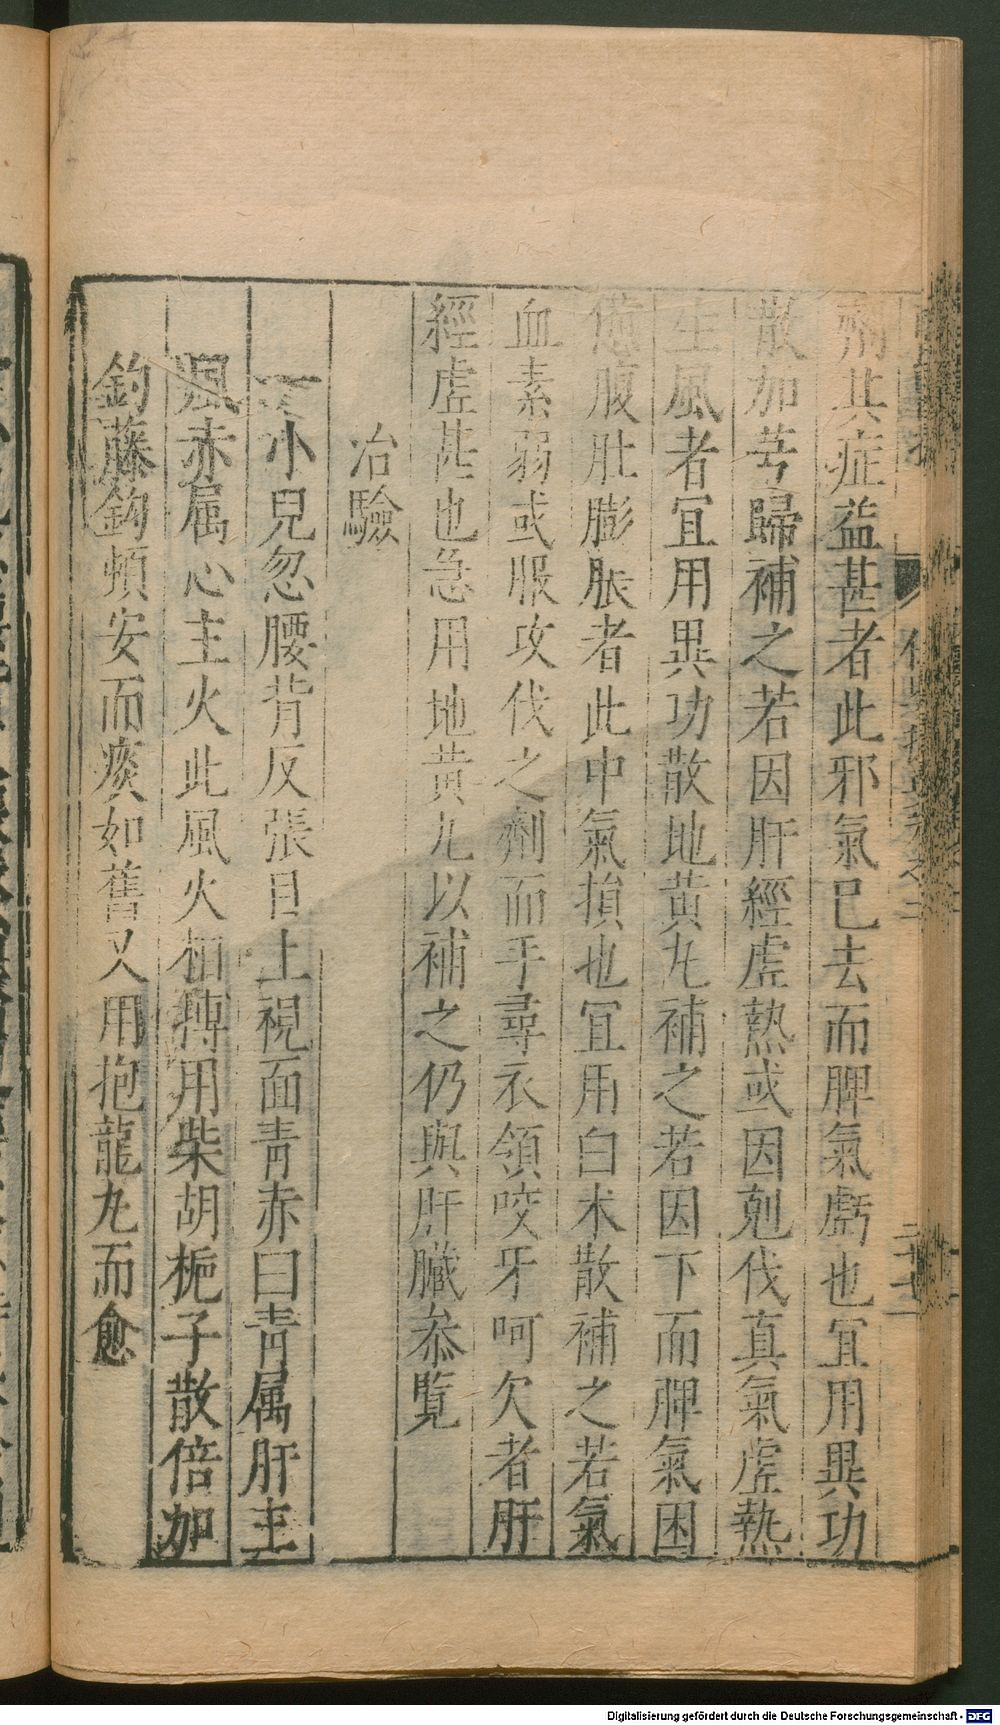 劑其症益甚者此邪氣已去而脾氣虧也宜用異功
散加芎歸補之若因肝經虛熱或因剋伐真氣虛熱
生風者宜用異功散地黃丸補之若因下而脾氣困
憊腹肚膨脹者此中氣損也宜用白术散補之若氣
血素弱或服攻伐之劑而手尋衣領咬牙呵欠者肝
經虛甚也急用地黃丸以補之仍與肝臟叅覧
治驗
一小兒忽腰背反張目上視面青赤曰青属肝主
風赤属心主火此風火相摶用柴胡梔子散倍加
鈎藤鈎頓安而痰如舊又用抱龍丸而愈
Digitalisierung gefördert durch die Deutsche Forschungsgemeinschaft - DFG